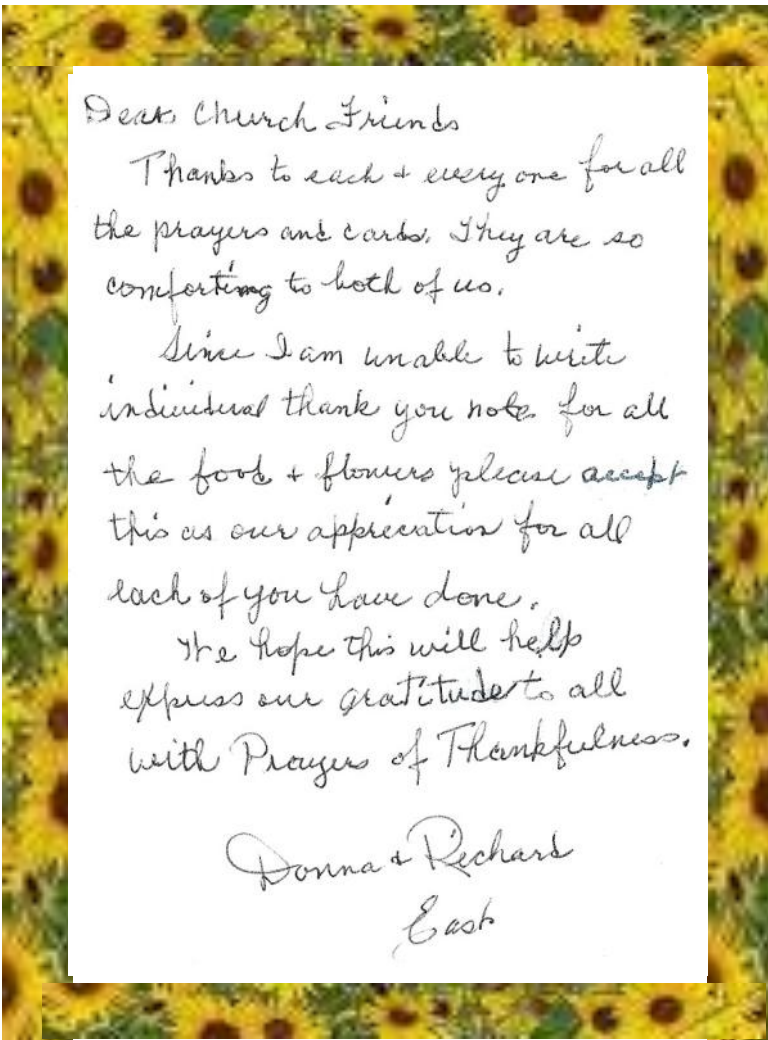 Dear Church Friends
Thanks to each + every one for all
the prayers and cards. They are so
comforting to both of us.
Since I am unable to write
individual thank you note for all
the food + flowers please accept
this as our appreciation for all
each of you have done.
We hope this will help
express our gratitude to all
with Prayers of Thankfulness.
Donna + Richard
East